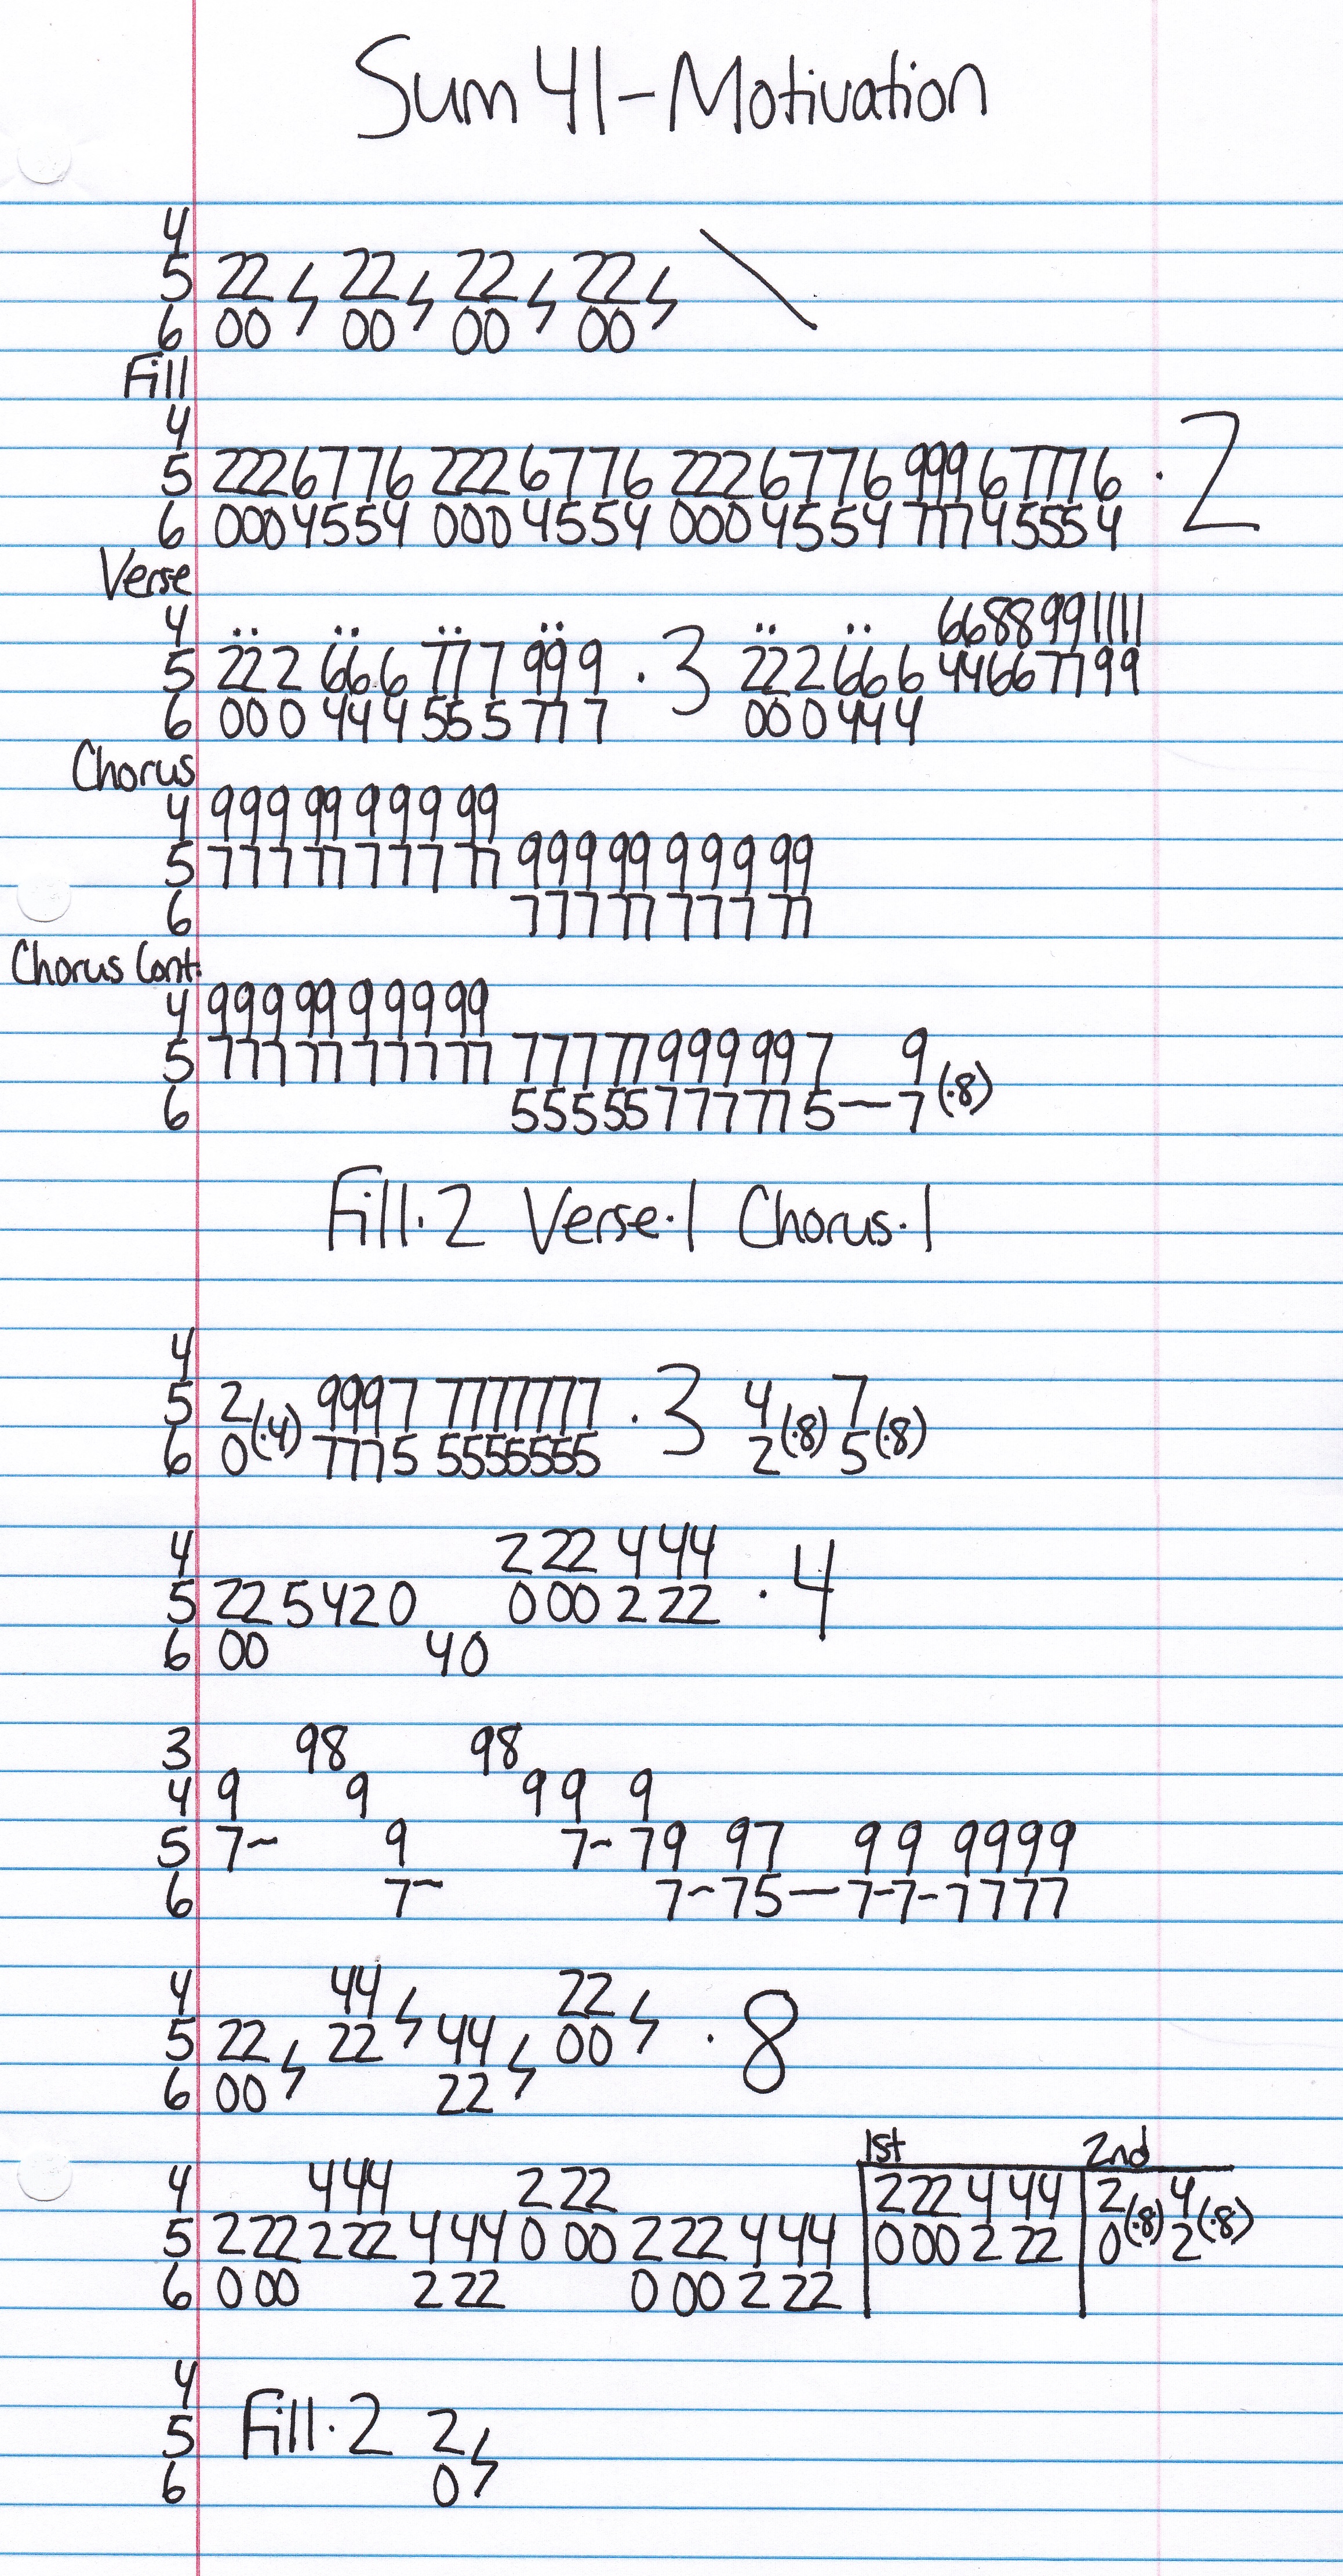 Sum 41-Motivation
4
5 22 ϟ 22 ϟ 22 ϟ 22 ϟ \
6 00 00 00 00
Fill
4
5 2226776 2226776 2226776 99967776 · 2
6 0004554 0004554 0004554 77745554
Verse
4 .. .. .. .. .. .. 6688991111
5 222 666 777 999 · 3 222 666 44667799
6 000 444 555 777 000 444
Chorus
4 999 99 9 9 9 99
5 777 77 7 7 7 77 999 99 9 9 9 99
6 777 77 7 7 7 77
Chorus Cont.
4 999 99 9 9 9 99
5 777 77 7 7 7 77 77777999997 9
6 55555777775—7(·8)
Fill·2 Verse·1 Chorus·1
4
5 2(·4) 9997 7777777 · 3 4(·8) 7(·8)
6 0 7775 5555555 2 5
4 2 22 4 44
5 22 5420 0 00 2 22 · 4
6 00 40
3 98 98
4 9 9 99 9
5 7~ 9 7~79 97 99 9999
6 7~ 7~75—7-7-7777
4 44 ϟ 22 ϟ
5 22 ϟ 22 44 ϟ 00 · 8
6 00 22
1st 2nd
4 444 222 222 444 2(·8) 4(·8)
5 222 222 444 000 222 444 000 222 0 2
6 000 222 000 222
4
5 Fill·2 2 ϟ
6 0